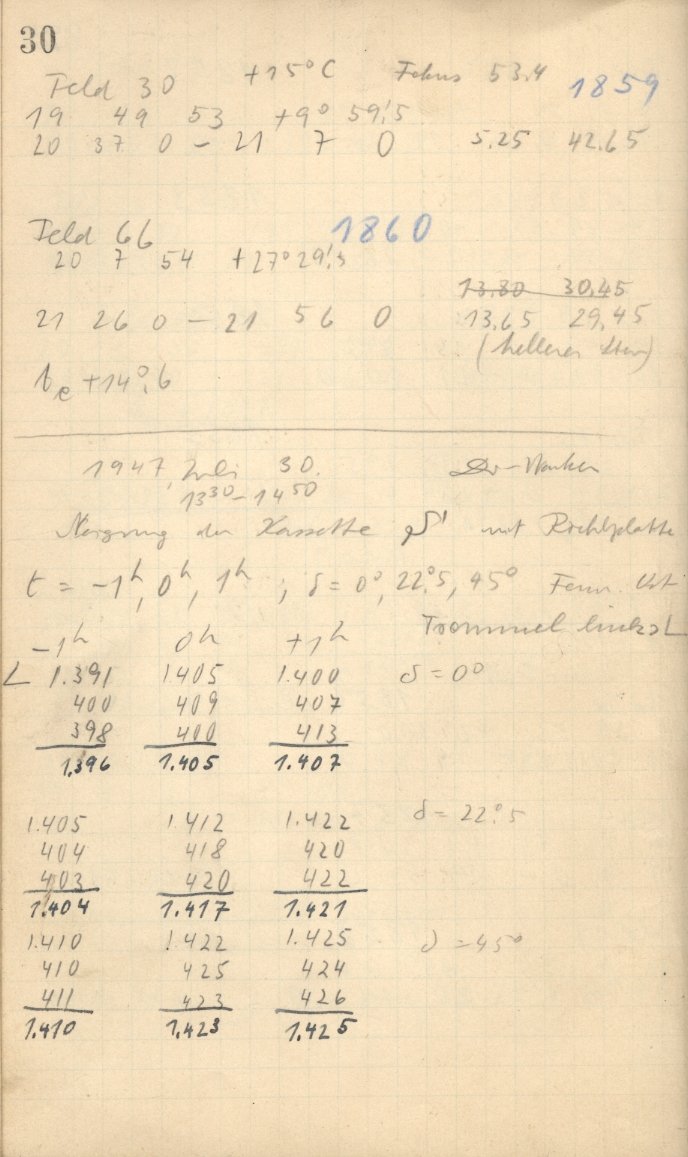 30
Feld 30 +15°C Fokus 53.4 1859
19 49 53 +9° 59!5
20 37 0 – 21 7 0 5.25 42.65
Feld 66 1860
20 7 54 +27° 29!5
13.80 30.45
21 26 0 – 21 56 0 13.65 29.45
(hellerer Stern)
te +14°.6
1947 Juli 30.
13 30 – 14 50
Neigung der Kassette mit Richtplatte
t = -1h, 0h, 1h ; δ = 0°, 22°.5, 45° Fernr. Ost
Trommel links L
-1h 0h +1h
L 1.391 1.405 1.400 δ = 0°
400 409 407
398 400 413
1.396 1.405 1.407
1.405 1.412 1.422 δ = 22°.5
404 418 420
403 420 422
1.404 1.417 1.421
1.410 1.422 1.425 δ = 45°
410 425 424
411 423 426
1.410 1.423 1.425